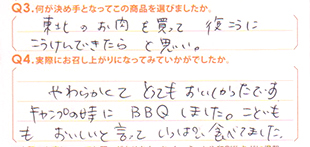 Q3.何が決め手となってこの商品を選びましたか。
東北のお肉を買って 復こうに
こうけんできたら と思い。
Q4.実際にお召し上がりになってみていかがでしたか。
やわらかくて とても おいしかったです
キャンプの時に BBQ しました。こども
も おいしいと言って いっぱい 食べてました。